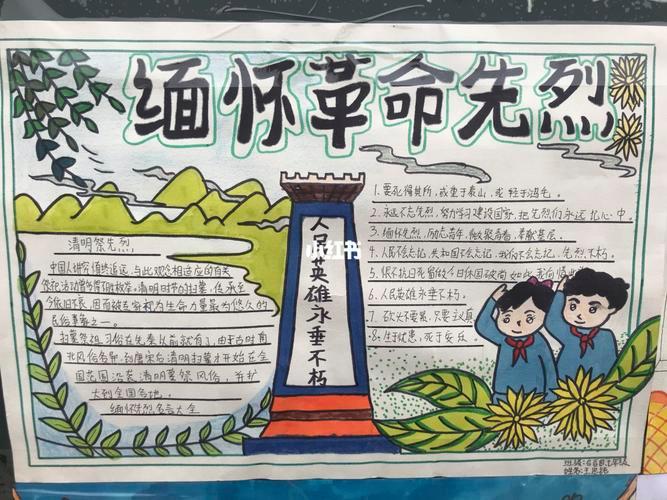 缅怀革命先烈
清明祭先烈
中国人讲究慎终追远,与此观念相适应的自矣
祭祀活动
清明时节的扫墓,传承至
今很旧不衰,因而被专家视为生命力量最为悠久的
民俗事象之一。
扫墓祭祖习俗在先秦以前就有了,由于古时南
北风俗各异,到唐宋后清明扫墓才开始在全
国范围沿袭清明墓祭风俗,并扩
大到全国各地。
缅怀先烈名言大全
人民英雄永垂不朽
小红书
1、要死得其所,或重于泰山,或轻于鸿毛。
2、永远不忘先烈,努力学习建设国家,把先烈们永远记心中。
3、缅怀先烈,励志青年,凝聚青春,奉献基层。
4、人民不会忘记,共和国不会忘记,我们不会忘记,先烈不朽。
5、恨不抗日死,留作今日休国破尚如此,我何惜此头
6、人民英雄永垂不朽。
7、砍头不要紧,只要主义真
8、生于忧患,死于安乐。
班级:
姓名:王思艳